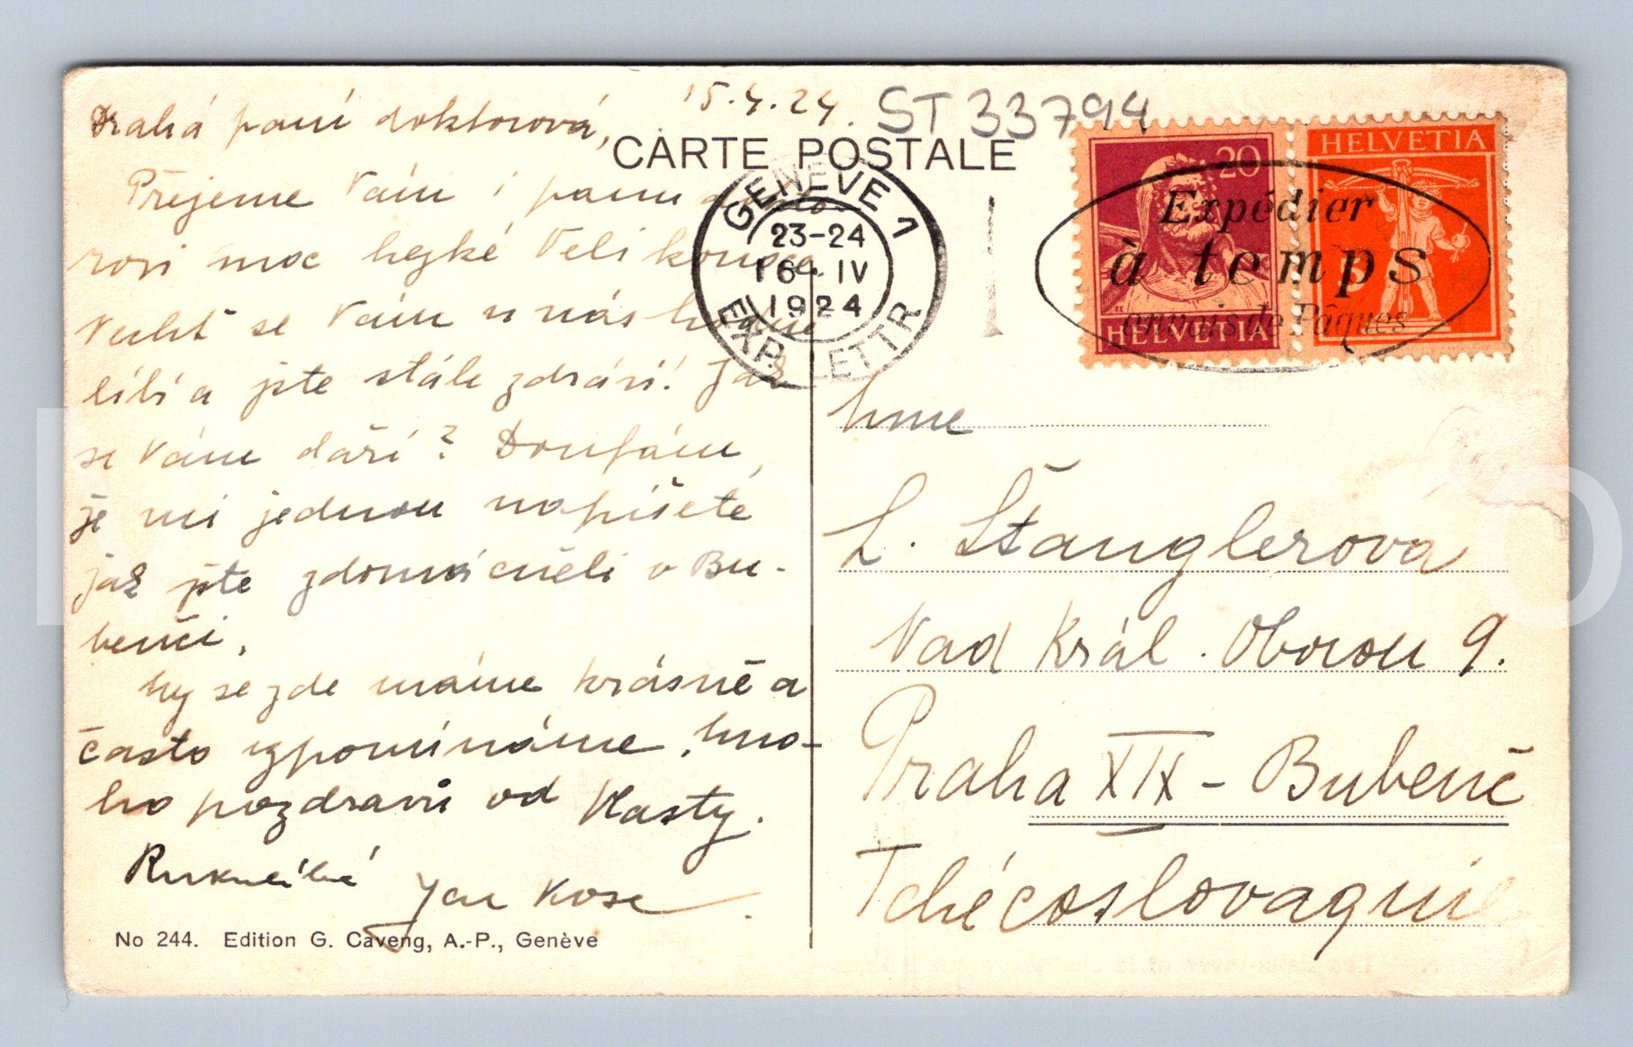 15.4.24.
ST 33794
Drahá paní doktorová,
Přejeme Vám i panu dokto-
rovi moc hezké Velikonoce
Vždyť se Vám u nás
líbí a jste stále zdrávi! Jak
se Vám daří? Doufám,
že mi jednou napíšete
jak jste zdomácněli v Bu-
benči.
My se zde máme krásně a
často vzpomínáme. Mno-
ho pozdravů od Vlasty.
Rukulíbá Jan Kose
No 244. Edition G. Caveng, A.-P., Genève
CARTE POSTALE
GENÈVE 1
23-24
16 IV
1924
EXP. LETTR
20
HELVETIA
HELVETIA
Expédier
à temps
envois de Pâques
Mme
L. Štanglerová
Nad Král. Oborou 9.
Praha XIX - Bubeneč
Tchécoslovaquie